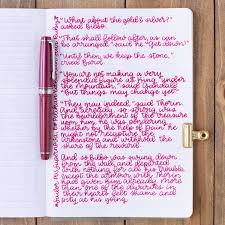 "What about the gold & silver?"
asked Bilbo.
"That shall follow after, as can
be arranged," said he. "Get down!"
"Until then, we keep the stone,"
cried Bard.
"You are not making a very
splendid figure as King under
the Mountain," said Gandalf.
"But things may change yet."
"They may indeed," said Thorin.
And already, so strong was
the bewilderment of the treasure
upon him, he was pondering
whether by the help of Dain he
might not recapture the
Arkenstone and withhold the
share of the reward.
And so Bilbo was swung down
from the wall, and departed
with nothing for all his trouble,
except the armour which Thorin
had given him already. More
than one of the dwarves in their
hearts felt shame and
pity at his going.